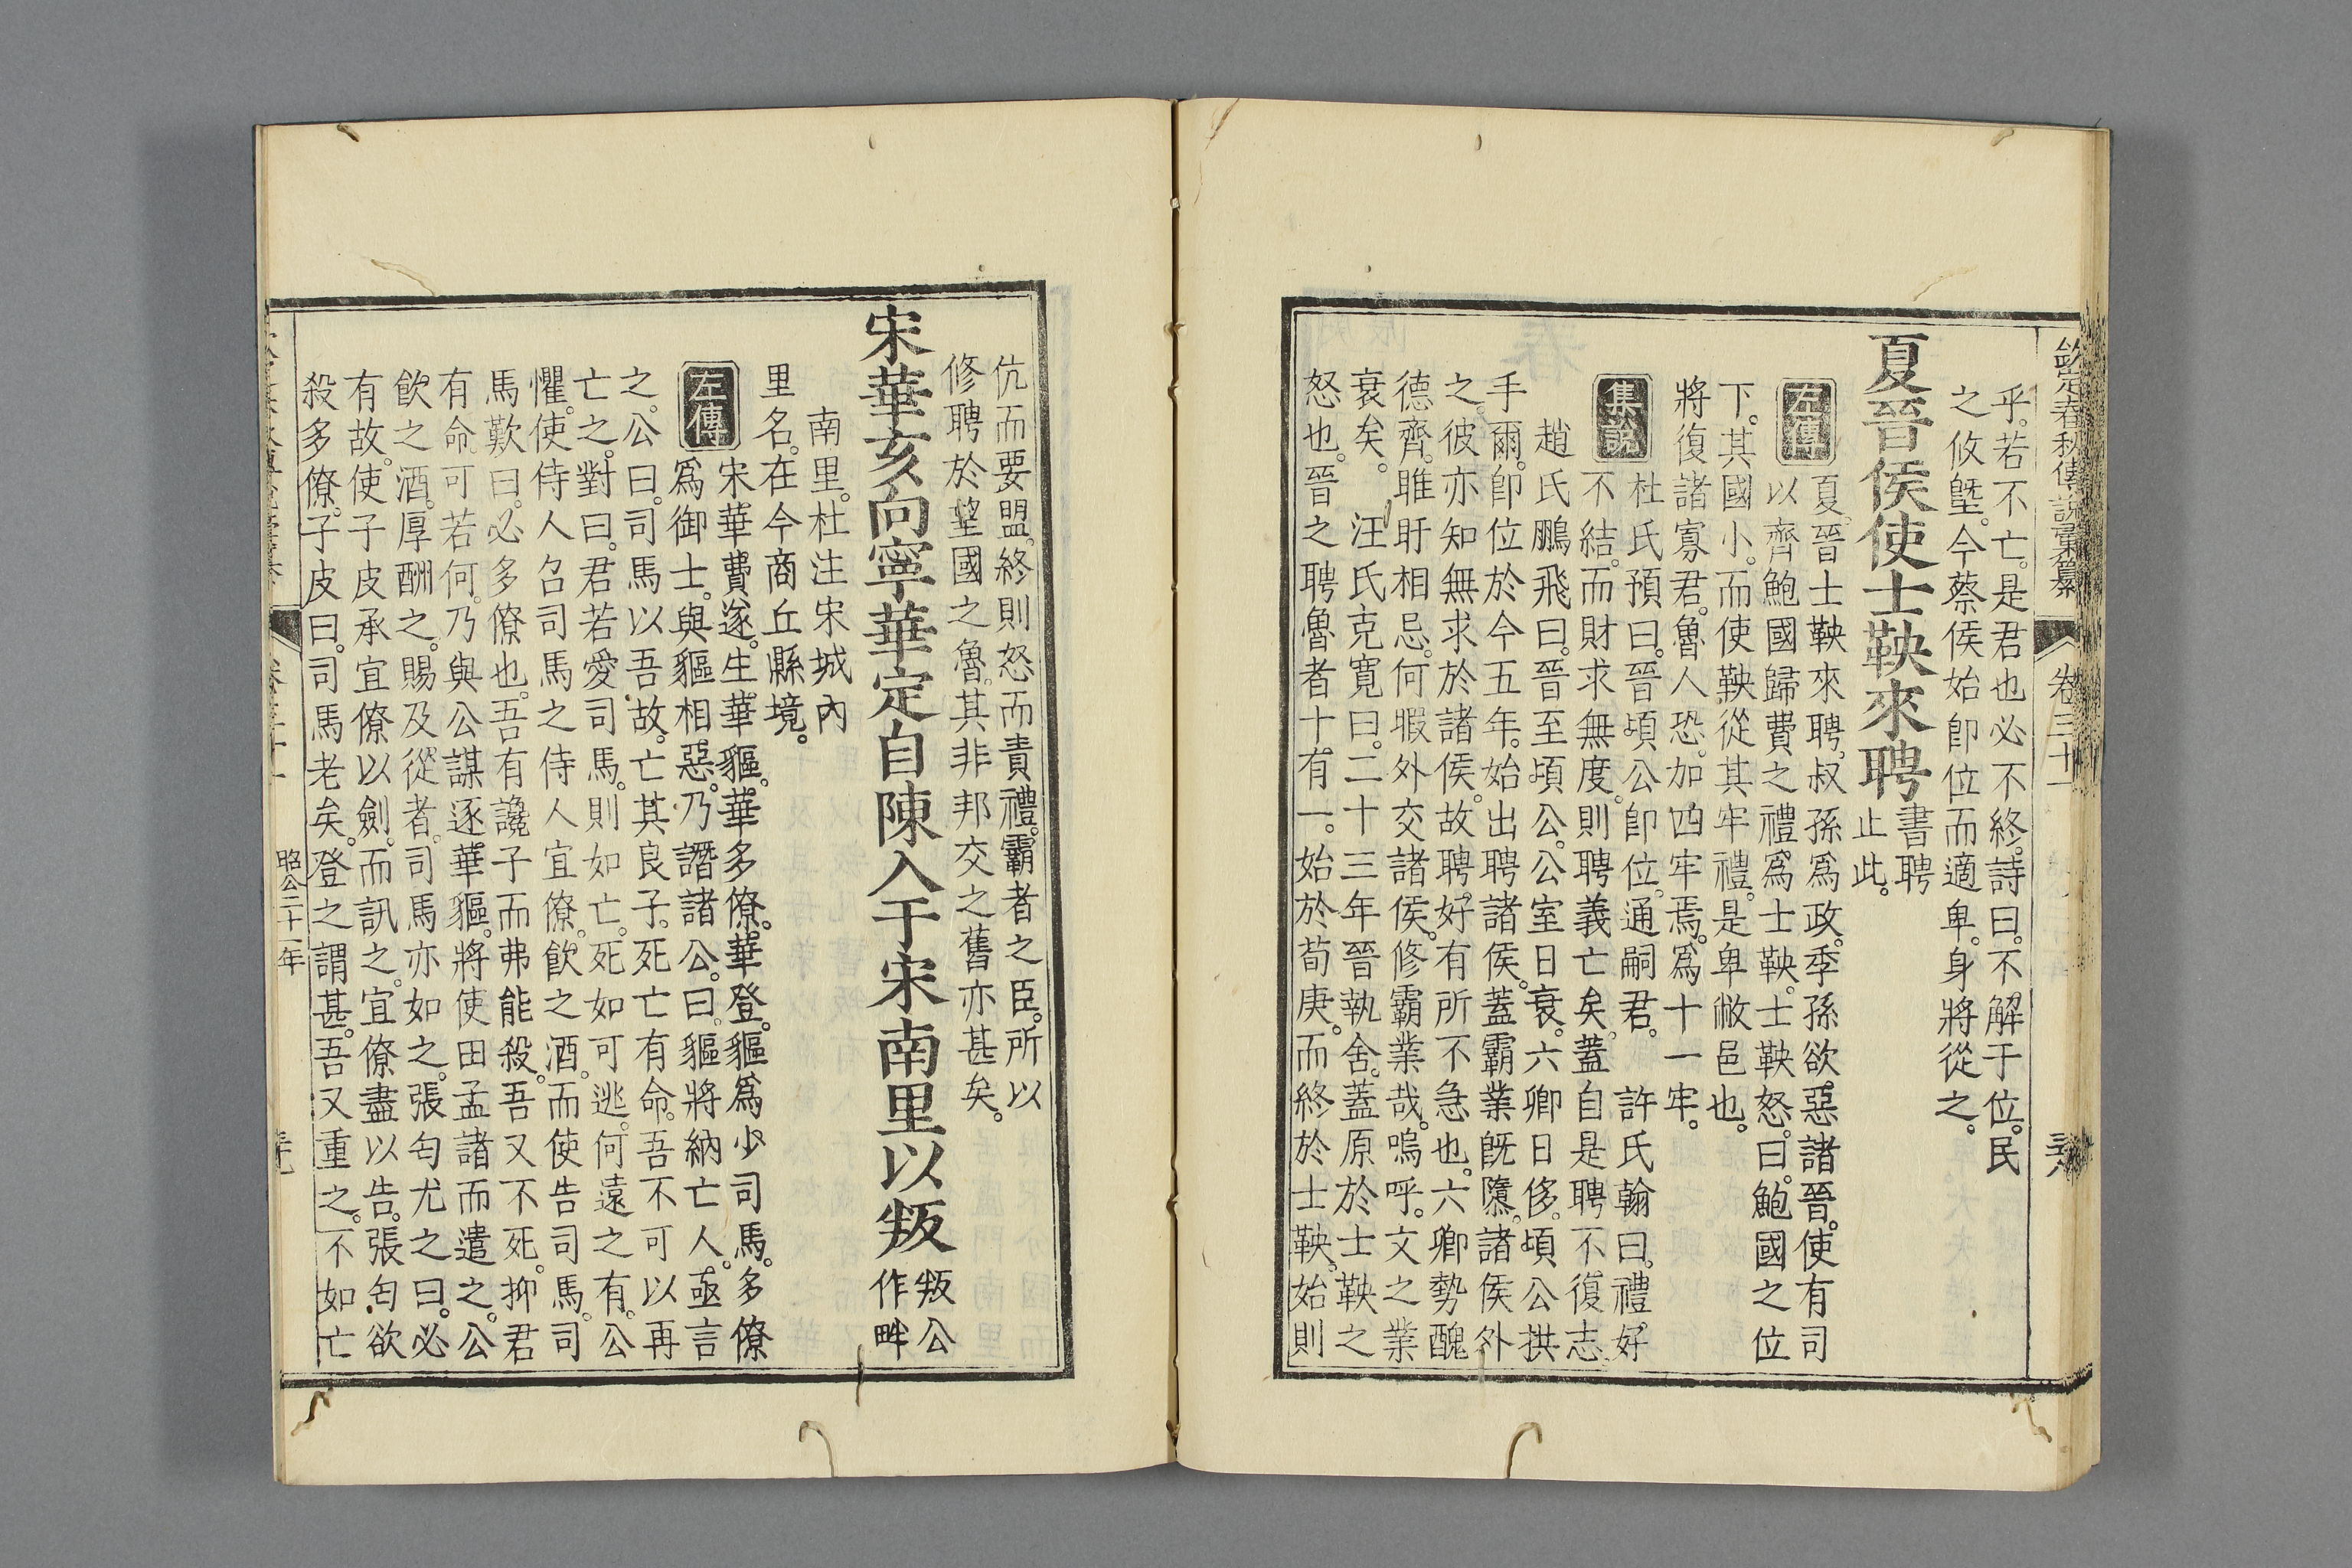 欽定春秋傳說彙纂 卷三十一
乎。若不亡。是君也必不終。詩曰。不解于位。民
之攸塈。今蔡侯始卽位而適卑。身將從之。
夏晉侯使士鞅來聘 書聘
止此。
左傳 夏。晉士鞅來聘。叔孫爲政。季孫欲惡諸晉。使有司
以齊鮑國歸費之禮爲士鞅。士鞅怒。曰。鮑國之位
下。其國小。而使鞅從其牢禮。是卑敝邑也。
將復諸寡君。魯人恐。加四牢焉。爲十一牢。
集說 杜氏預曰。晉頃公卽位。通嗣君。 許氏翰曰。禮好
不結。而財求無度。則聘義亡矣。蓋自是聘不復志
趙氏鵬飛曰。晉至頃公。公室日衰。六卿日侈。頃公拱
手爾。卽位於今五年。始出聘諸侯。蓋霸業旣隳。諸侯外
之。彼亦知無求於諸侯。故聘好有所不急也。六卿勢醜
德齊。睢盱相忌。何暇外交諸侯。修霸業哉。嗚呼。文之業
衰矣。 汪氏克寬曰。二十三年晉執舍。蓋原於士鞅之
怒也。晉之聘魯者十有一。始於荀庚。而終於士鞅。始則
伉而要盟。終則怒而責禮。霸者之臣。所以
修聘於望國之魯。其非邦交之舊亦甚矣。
宋華亥向寧華定自陳入于宋南里以叛 叛公
作畔
南里。杜注宋城內
里名。在今商丘縣境。
左傳 宋華費遂。生華貙。華多僚。華登。貙爲少司馬。多僚
爲御士。與貙相惡。乃譖諸公。曰。貙將納亡人。亟言
之。公曰。司馬以吾故。亡其良子。死亡有命。吾不可以再
亡之。對曰。君若愛司馬。則如亡。死如可逃。何遠之有。公
懼。使侍人召司馬之侍人宜僚。飲之酒。而使告司馬。司
馬歎曰。必多僚也。吾有讒子而弗能殺。吾又不死。抑君
有命。可若何。乃與公謀逐華貙。將使田孟諸而遣之。公
飲之酒。厚酬之。賜及從者。司馬亦如之。張匄尤之曰。必
有故。使子皮承宜僚以劍。而訊之。宜僚盡以告。張匄欲
殺多僚。子皮曰。司馬老矣。登之謂甚。吾又重之。不如亡
昭公二十一年